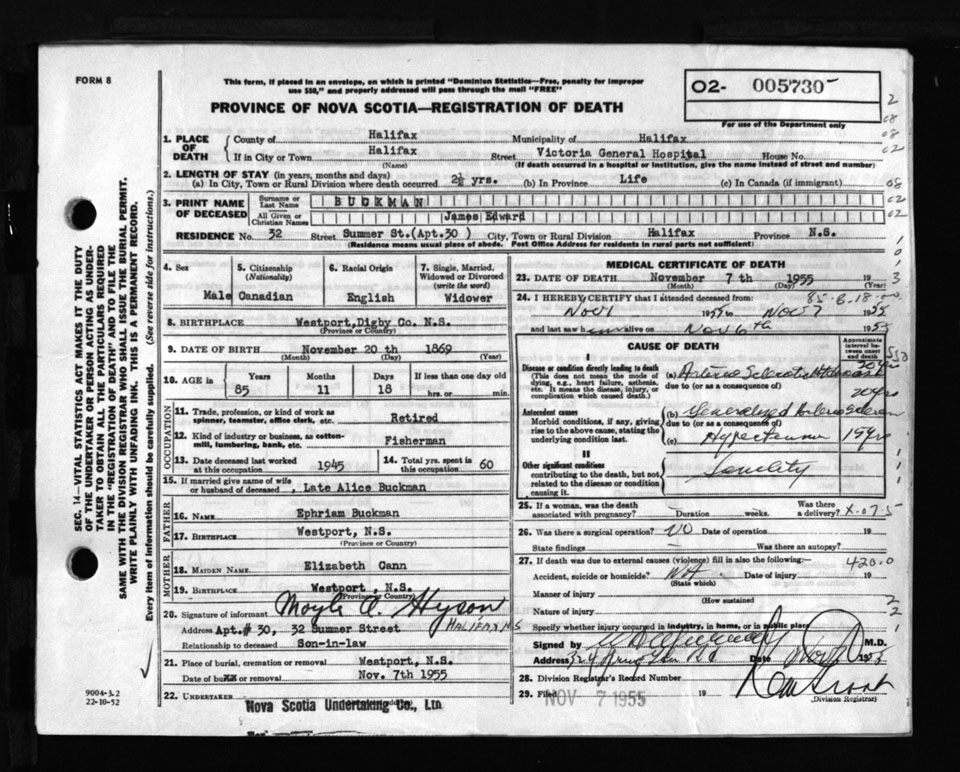 FORM 8
This form, if placed in an envelope, on which is printed "Dominion Statistics—Free, penalty for improper
use $50," and properly addressed will pass through the mail "FREE"
O2- 005730
For use of the Department only
PROVINCE OF NOVA SCOTIA—REGISTRATION OF DEATH
SEC. 14—VITAL STATISTICS ACT MAKES IT THE DUTY
OF THE UNDERTAKER OR PERSON ACTING AS UNDER-
TAKER TO OBTAIN ALL THE PARTICULARS REQUIRED
IN THE "REGISTRATION OF DEATH" AND TO FILE THE
SAME WITH THE DIVISION REGISTRAR WHO SHALL ISSUE THE BURIAL PERMIT.
WRITE PLAINLY WITH UNFADING INK. THIS IS A PERMANENT RECORD.
Every item of information should be carefully supplied. (See reverse side for instructions.)
1. PLACE OF DEATH County of Halifax Municipality of Halifax
If in City or Town Halifax Street Victoria General Hospital House No.
(Name) (If death occurred in a hospital or institution, give the name instead of street and number)
2. LENGTH OF STAY (in years, months and days)
(a) In City, Town or Rural Division where death occurred 2½ yrs. (b) In Province Life (c) In Canada (if immigrant)
3. PRINT NAME OF DECEASED Surname or Last Name BUCKMAN
All Given or Christian Names James Edward
RESIDENCE No. 32 Street Summer St.(Apt.30 ) City, Town or Rural Division Halifax Province N.S.
(Residence means usual place of abode. Post Office Address for residents in rural parts not sufficient)
4. Sex Male
5. Citizenship (Nationality) Canadian
6. Racial Origin English
7. Single, Married, Widowed or Divorced (write the word) Widower
8. BIRTHPLACE Westport,Digby Co. N.S.
(Province or Country)
9. DATE OF BIRTH November 20 th 1869
(Month) (Day) (Year)
10. AGE in Years 85 Months 11 Days 18 If less than one day
hrs. or min.
OCCUPATION
11. Trade, profession, or kind of work as spinner, teamster, office clerk, etc. Retired
12. Kind of industry or business, as cotton-mill, lumbering, bank, etc. Fisherman
13. Date deceased last worked at this occupation 1945
14. Total yrs. spent in this occupation 60
15. If married give name of wife or husband of deceased , Late Alice Buckman
FATHER
16. NAME Ephriam Buckman
17. BIRTHPLACE Westport, N.S.
(Province or Country)
MOTHER
18. MAIDEN NAME Elizabeth Cann
19. BIRTHPLACE Westport , N.S.
(Province or Country)
20. Signature of informant Moyle A. Hyson
Address Apt.# 30, 32 Summer Street HALIFAX N.S
Relationship to deceased Son-in-law
21. Place of burial, cremation or removal Westport, N.S.
Date of burial or removal Nov. 7th 1955
22. UNDERTAKER Nova Scotia Undertaking Co., Ltd
9004-3.2
22-10-52
MEDICAL CERTIFICATE OF DEATH
23. DATE OF DEATH November 7 th 1955 19
(Month) (Day)
85-8-18
24. I HEREBY CERTIFY that I attended deceased from:
Nov 1 1955 to Nov 7 1955
and last saw him alive on Nov 6th 1955
CAUSE OF DEATH
Approximate interval between onset and death
I
Disease or condition directly leading to death
(This does not mean the mode of dying, e.g., heart failure, asthenia, etc. It means the disease, injury, or complication which caused death.)
(a) Arterio Sclerotic
due to (or as a consequence of)
20 yrs
Antecedent causes
Morbid conditions, if any, giving rise to the above cause, stating the underlying condition last.
(b) Generalized Arterio Sclerosis
due to (or as a consequence of)
(c) Hypertension 15 yrs
II
Other significant conditions
contributing to the death, but not related to the disease or condition causing it.
Senility
25. If a woman, was the death associated with pregnancy? Duration weeks. Was there a delivery? X-075
26. Was there a surgical operation? NO Date of operation 19
State findings Was there an autopsy?
27. If death was due to external causes (violence) fill in also the following:— 420.0
Accident, suicide or homicide? NA Date of injury 19
(State which)
Manner of injury
(How sustained
Nature of injury
Specify whether injury occurred in industry, in home, or in public place
Signed by M.D.
Address 324 Date Nov 7 1955
28. Division Registrar's Record Number
29. Filed NOV 7 1955 19
(Division Registrar)